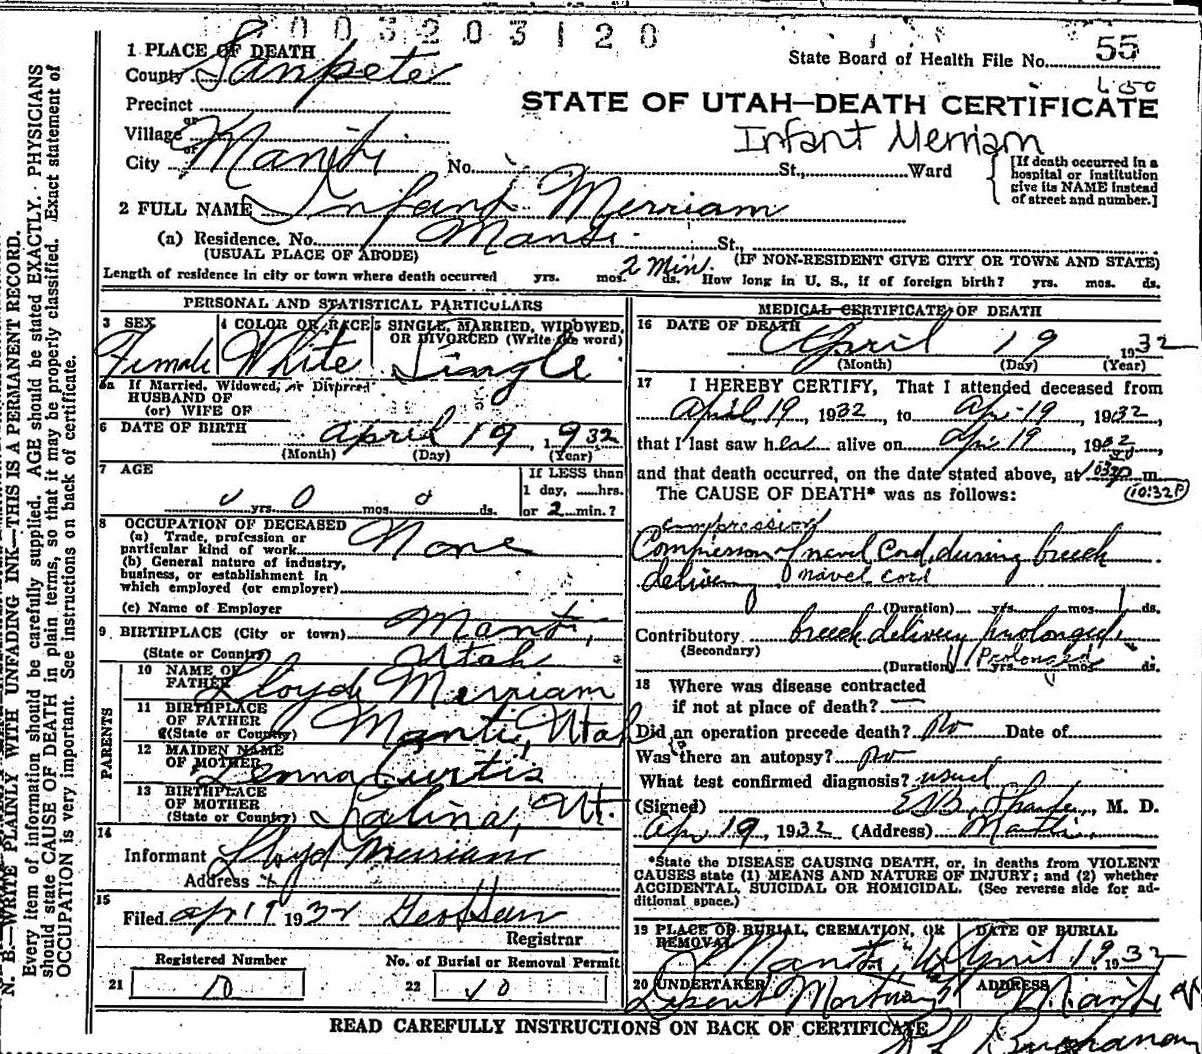 003203120
1 PLACE OF DEATH
State Board of Health File No. 55
County Sanpete
Precinct
STATE OF UTAH—DEATH CERTIFICATE
or
Village
Infant Merriam
or
City Manti No. St., Ward
[If death occurred in a hospital or institution give its NAME instead of street and number.]
2 FULL NAME Infant Merriam
(a) Residence. No. Manti St.,
(USUAL PLACE OF ABODE) (IF NON-RESIDENT GIVE CITY OR TOWN AND STATE)
Length of residence in city or town where death occurred yrs. mos. 2 Min. ds. How long in U. S., if of foreign birth? yrs. mos. ds.
PERSONAL AND STATISTICAL PARTICULARS
3 SEX 4 COLOR OR RACE 5 SINGLE, MARRIED, WIDOWED,
OR DIVORCED (Write the word)
Female White Single
6a If Married, Widowed, or Divorced
HUSBAND OF
(or) WIFE OF
6 DATE OF BIRTH April 19, 1932
(Month) (Day) (Year)
7 AGE If LESS than
1 day, hrs.
0 yrs. 0 mos. 0 ds. or 2 min.?
8 OCCUPATION OF DECEASED
(a) Trade, profession or
particular kind of work None
(b) General nature of industry,
business, or establishment in
which employed (or employer)
(c) Name of Employer
9 BIRTHPLACE (City or town) Manti,
(State or Country) Utah
PARENTS
10 NAME OF
FATHER Lloyd Merriam
11 BIRTHPLACE
OF FATHER
(State or Country) Manti, Utah
12 MAIDEN NAME
OF MOTHER Lenna Curtis
13 BIRTHPLACE
OF MOTHER
(State or Country) Salina, Ut.
14
Informant Lloyd Merriam
Address
15
Filed Apr 19 1932
Registrar
Registered Number No. of Burial or Removal Permit
21 10 22 10
MEDICAL CERTIFICATE OF DEATH
16 DATE OF DEATH
April 19 1932
(Month) (Day) (Year)
17 I HEREBY CERTIFY, That I attended deceased from
April 19, 1932, to Apr 19, 1932,
that I last saw her alive on Apr 19, 1932
and that death occurred, on the date stated above, at 1032p m.
(10:32P)
The CAUSE OF DEATH* was as follows:
compression
Compression of navel cord during breech
delivery navel cord
(Duration) yrs. mos. 1 ds.
Contributory breech delivery prolonged
(Secondary)
(Duration) yrs. Prolonged mos. ds.
18 Where was disease contracted
if not at place of death?
Did an operation precede death? No Date of
Was there an autopsy? No
What test confirmed diagnosis? usual
(Signed) M. D.
Apr 19, 1932 (Address) Manti
*State the DISEASE CAUSING DEATH, or, in deaths from VIOLENT
CAUSES state (1) MEANS AND NATURE OF INJURY; and (2) whether
ACCIDENTAL, SUICIDAL OR HOMICIDAL. (See reverse side for ad-
ditional space.)
19 PLACE OF BURIAL, CREMATION, OR
REMOVAL DATE OF BURIAL
Manti, U April 19 1932
20 UNDERTAKER ADDRESS
Mortuary Manti
READ CAREFULLY INSTRUCTIONS ON BACK OF CERTIFICATE
Buchanan
N. B.—WRITE PLAINLY WITH UNFADING INK—THIS IS A PERMANENT RECORD.
Every item of information should be carefully supplied. AGE should be stated EXACTLY. PHYSICIANS
should state CAUSE OF DEATH in plain terms, so that it may be properly classified. Exact statement of
OCCUPATION is very important. See instructions on back of certificate.